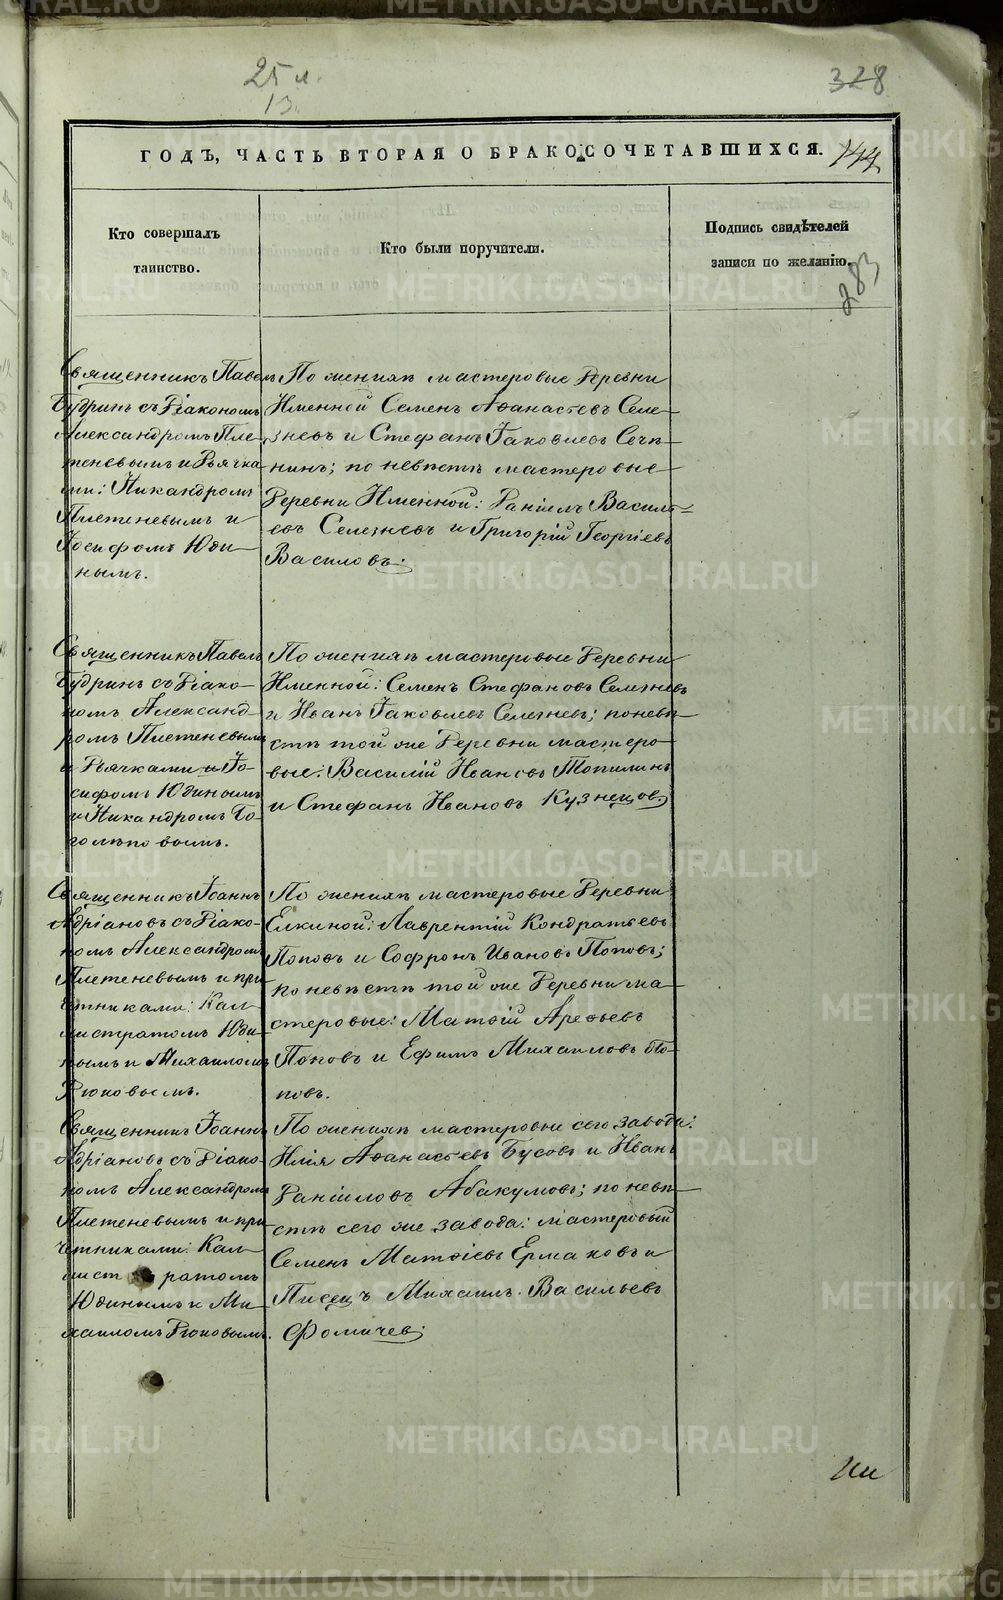 25 л.
13.
328
ГОДЪ, ЧАСТЬ ВТОРАЯ О БРАКОСОЧЕТАВШИХСЯ.
144
Кто совершалъ
таинство.
Кто были поручители.
Подпись свидѣтелей
записи по желанію.
283
Священникъ Павелъ
Будринъ съ Діакономъ
Александромъ Пле-
теневымъ и Дьячка-
ми: Никандромъ
Плетеневымъ и
Іосифомъ Юди-
нымъ.
По женихѣ мастеровые Деревни
Именной Семенъ Аѳанасьевъ Селе-
зневъ и Стефанъ Іаковлевъ
нинъ; по невѣстѣ мастеровые
Деревни Именной: Даніилъ Василь-
евъ Селезневъ и Григорій Георгіевъ
Василовъ.
Священникъ Павелъ
Будринъ съ Діако-
номъ Александ-
ромъ Плетеневымъ
и Дьячками Іо-
сифомъ Юдинымъ
и Никандромъ Бо-
голѣповымъ.
По женихѣ мастеровые Деревни
Именной: Семенъ Стефановъ Селезневъ
и Иванъ Іаковлевъ Селезневъ; по невѣ-
стѣ той же Деревни мастеро-
вые: Василій Ивановъ Топилинъ
и Стефанъ Ивановъ Кузнецов.
Священникъ Іоаннъ
Адріановъ съ Діако-
номъ Александромъ
Плетеневымъ и при-
четниками: Кал-
листратомъ Юди-
нымъ и Михаиломъ
Рюковымъ.
По женихѣ мастеровые Деревни
Елкиной: Лаврентій Кондратьевъ
Поповъ и Софронъ Ивановъ Поповъ;
по невѣстѣ той же Деревни ма-
стеровые: Матѳій Арефьевъ
Поповъ и Ефимъ Михаиловъ По-
повъ.
Священникъ Іоаннъ
Адріановъ съ Діако-
номъ Александромъ
Плетеневымъ и при-
четниками: Кал-
лист ратомъ
Юдинымъ и Ми-
хаиломъ Рюковымъ.
По женихѣ мастеровые сего завода:
Илія Аѳанасьевъ Бусовъ и Иванъ
Даніиловъ Абакумовъ; по невѣ-
стѣ сего же завода: мастеровый
Семенъ Матѳіевъ Ермаковъ и
Писецъ Михаилъ Васильевъ
Фомичев.
METRIKI.GASO-URAL.RU